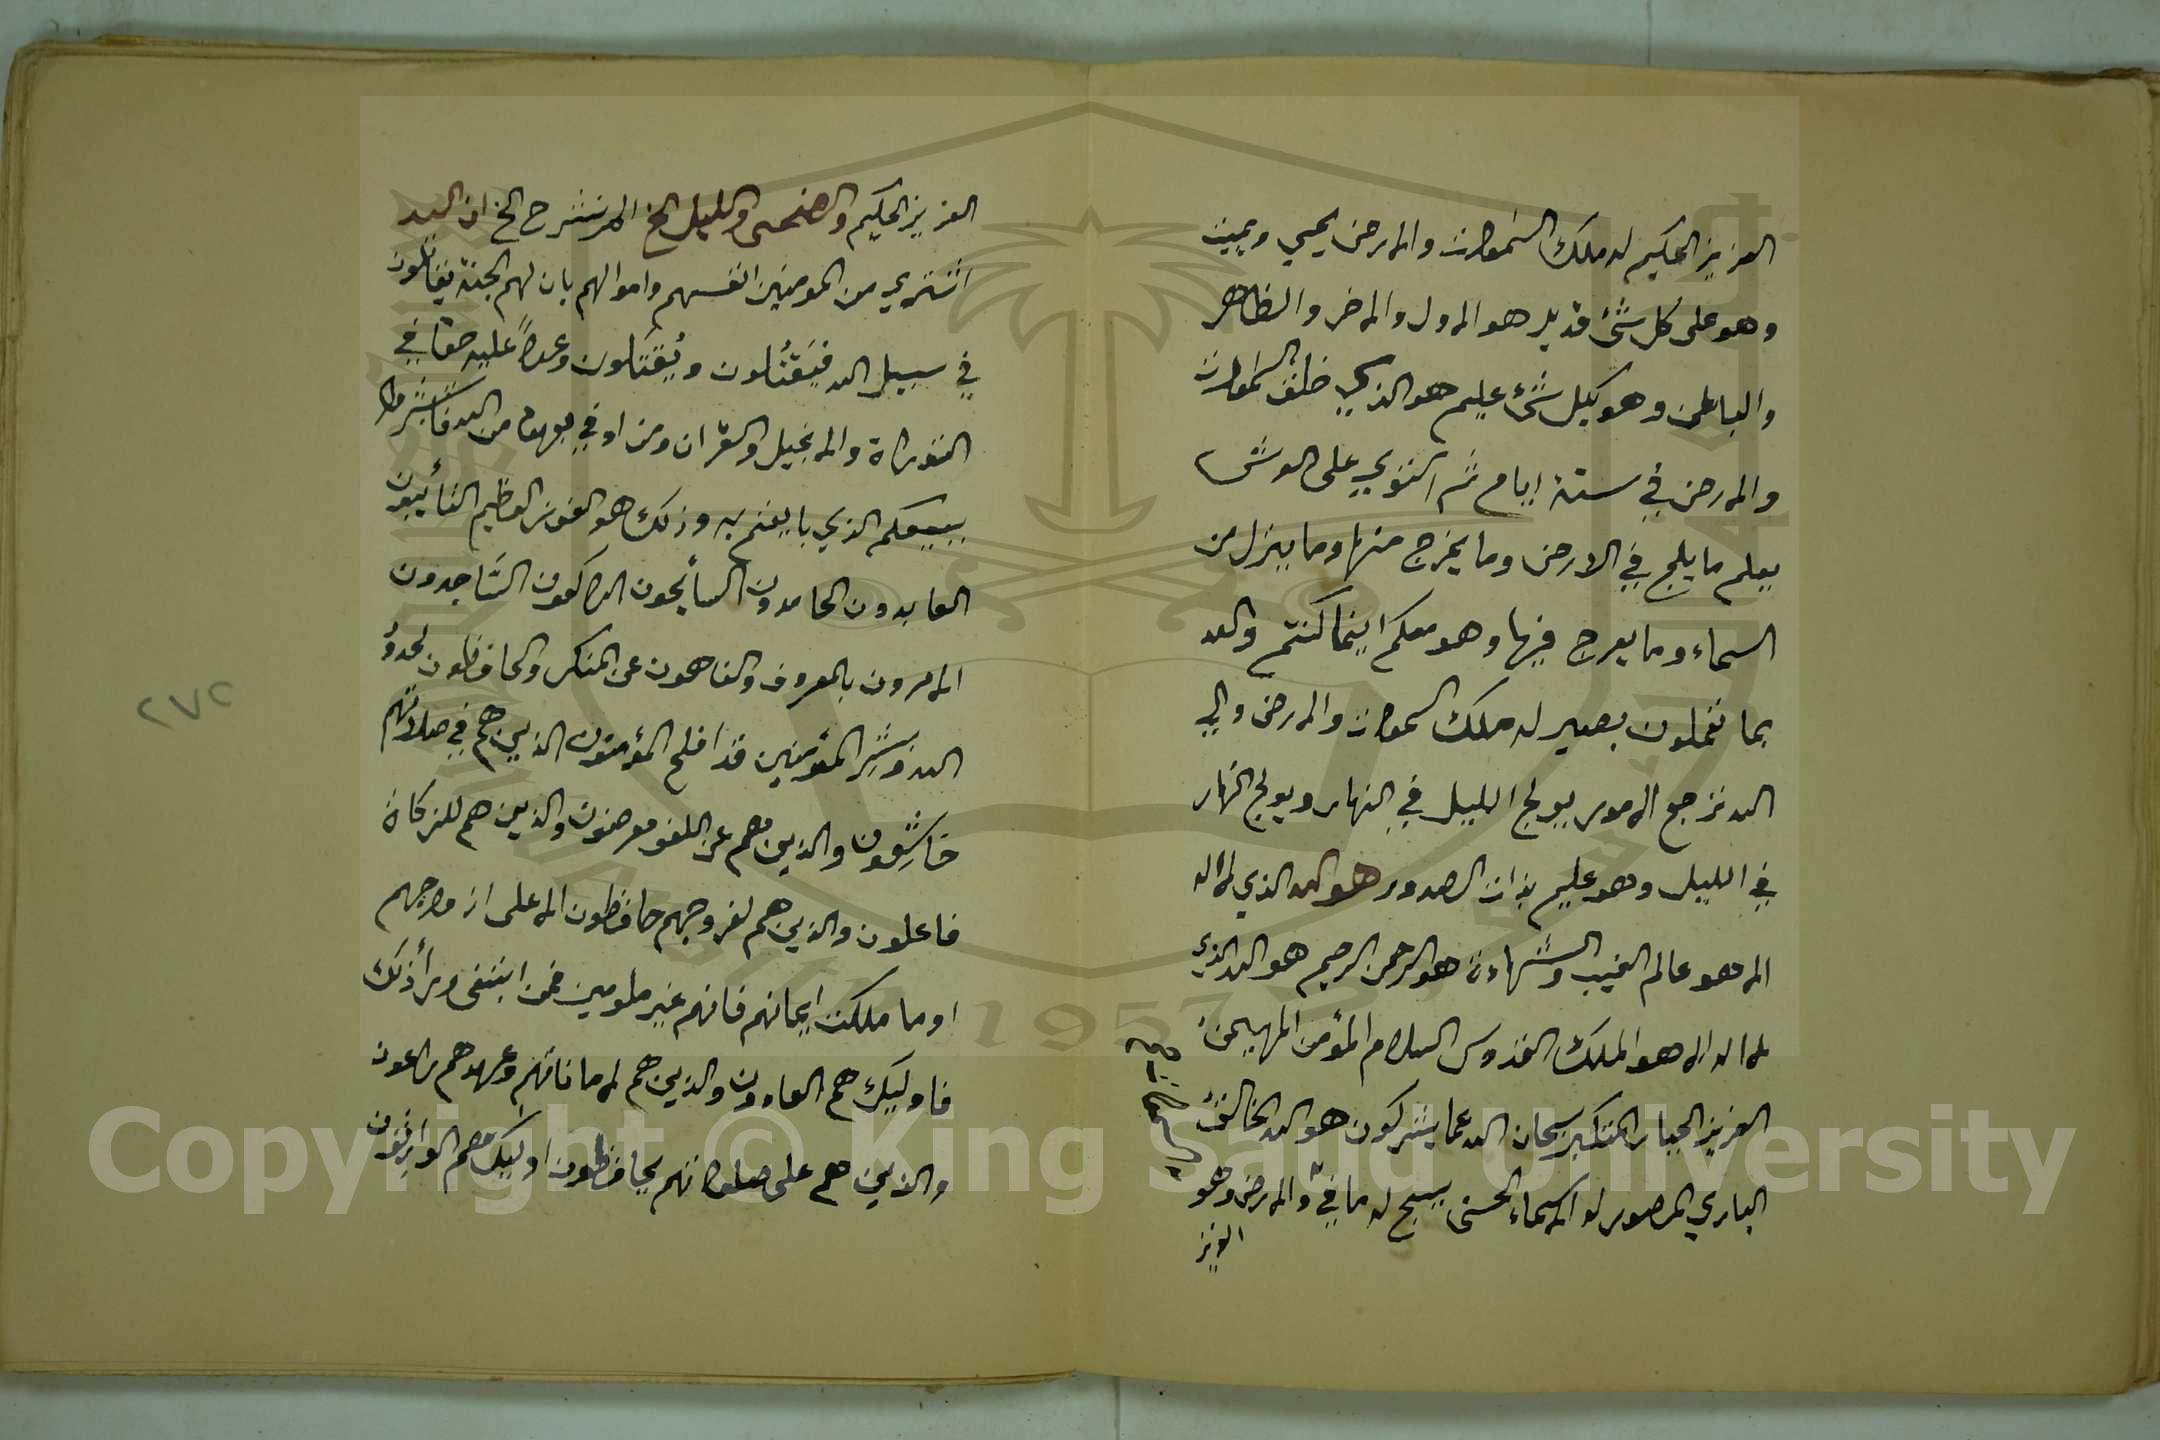 العزيز الحكيم له ملك السموات والارض يحيي ويميت
وهو على كل شئ قدير هو الاول والاخر والظاهر
والباطن وهو بكل شئ عليم هو الذي خلق السموات
والارض في ستة ايام ثم استوي على العرش
يعلم ما يلج في الارض وما يخرج منها وما ينزل من
السماء وما يعرج فيها وهو معكم اينما كنتم والله
بما تعملون بصير له ملك السموات والارض والي
الله ترجع الامور يولج الليل في النهار ويولج النهار
في الليل وهو عليم بذات الصدور هو الله الذي لا اله
الا هو عالم الغيب والشهادة هو الرحمن الرحيم هو الله الذي
لا اله الا هو الملك القدوس السلام المؤمن المهيمن
العزيز الجبار المتكبر سبحان الله عما يشركون هو الله الخالق
الباري المصور له الاسماء الحسنى يسبح له ما في والارض وهو
العزيز
العزيز الحكيم والضحى والليل الخ الم نشرح الخ ان الله
اشتري من المومنين انفسهم واموالهم بان لهم الجنة يقاتلون
في سبيل الله فيَقتُلون ويُقتَلون وعداً عليه حقا في
التوراة والانجيل والقران ومن اوفي بعهده من الله فاستبشروا
ببيعكم الذي بايعتم به وذلك هو الفوز العظيم التائبون
العابدون الحامدون السائحون الراكعون السَّاجدون
الامرون بالمعروف والناهون عن المنكر والحافظون لحدود
الله وبشِّر المؤمنين قد افلح المؤمنون الذين هم في صلاتهم
خاشِعون والذين هم عن اللغو معرضون والذين هم للزكاة
فاعلون والذين هم لفروجهم حافظون الا على ازواجهم
او ما ملكت ايمانهم فانهم غير ملومين فمن ابتغى ورأ ذلك
فاوليك هم العادون والذين هم لاماناتهم وعهدهم راعون
والذين هم على صلواتهم يحافظون اوليك هم الوارثون
٢٧٢
Copyright © King Saud University
1957